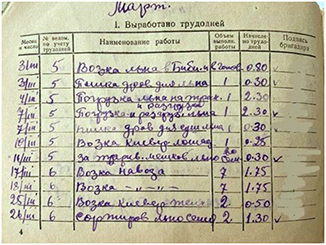 Март.
I. Выработано трудодней
Месяц и число | № ведом. по учету трудодней | Наименование работы | Объем выполн. работ | Начислено трудодней | Подпись бригадира
3/III 5 Возка льна 0-80
3/III 5 Пилка дров для льна 1 0-30
4/III 5 Погрузка льна на трак. 1 2-30
7/III 5 Погрузка и разгрузка льна 1 2-30
7/III 5 пилка дров для сушил 1 0-30
10/III 5 Возка клевер лошад 1 0-25
5 за мешков льно 0-30
17/III 6 Возка навоза 7 1-75
18/III 6 Возка —"— 7 1-75
25/III 6 Возка клевер 2 0-50
26/III 6 Сортиров льно семя 2 1-30
4